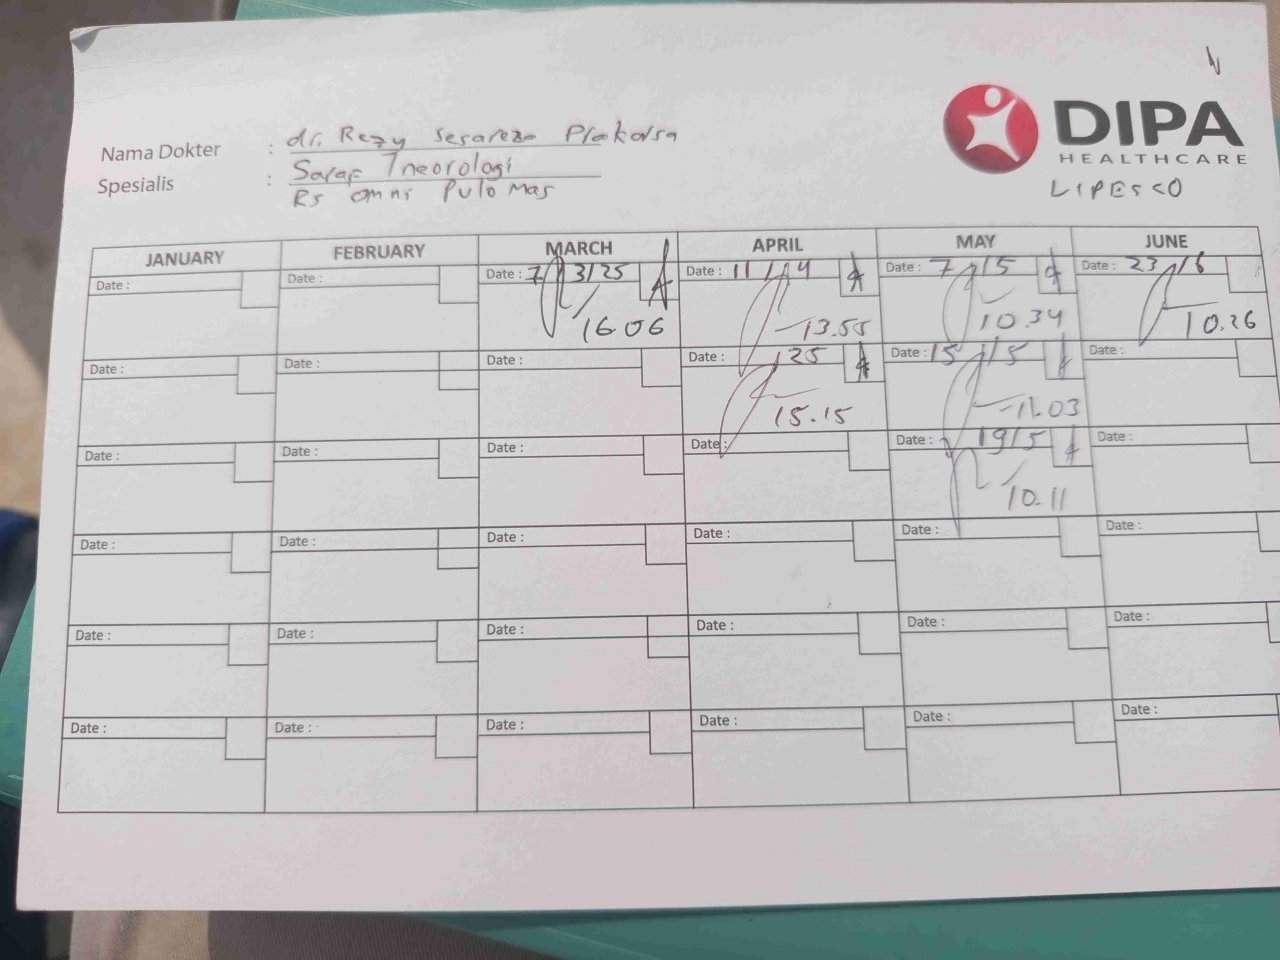 DIPA
HEALTHCARE
LIPESCO
Nama Dokter : dr. Rezy Sesareza Prakarsa
Spesialis : Saraf / neorologi
Rs omni Pulo Mas
JANUARY FEBRUARY MARCH APRIL MAY JUNE
Date : Date : Date : 7/3/25 Date : 11/4 Date : 7/5 Date : 23/6
16.06 13.55 10.34 10.26
Date : Date : Date : Date : 25 Date : 15/5 Date :
15.15 11.03
Date : Date : Date : Date : Date : 19/5 Date :
10.11
Date : Date : Date : Date : Date : Date :
Date : Date : Date : Date : Date : Date :
Date : Date : Date : Date : Date : Date :